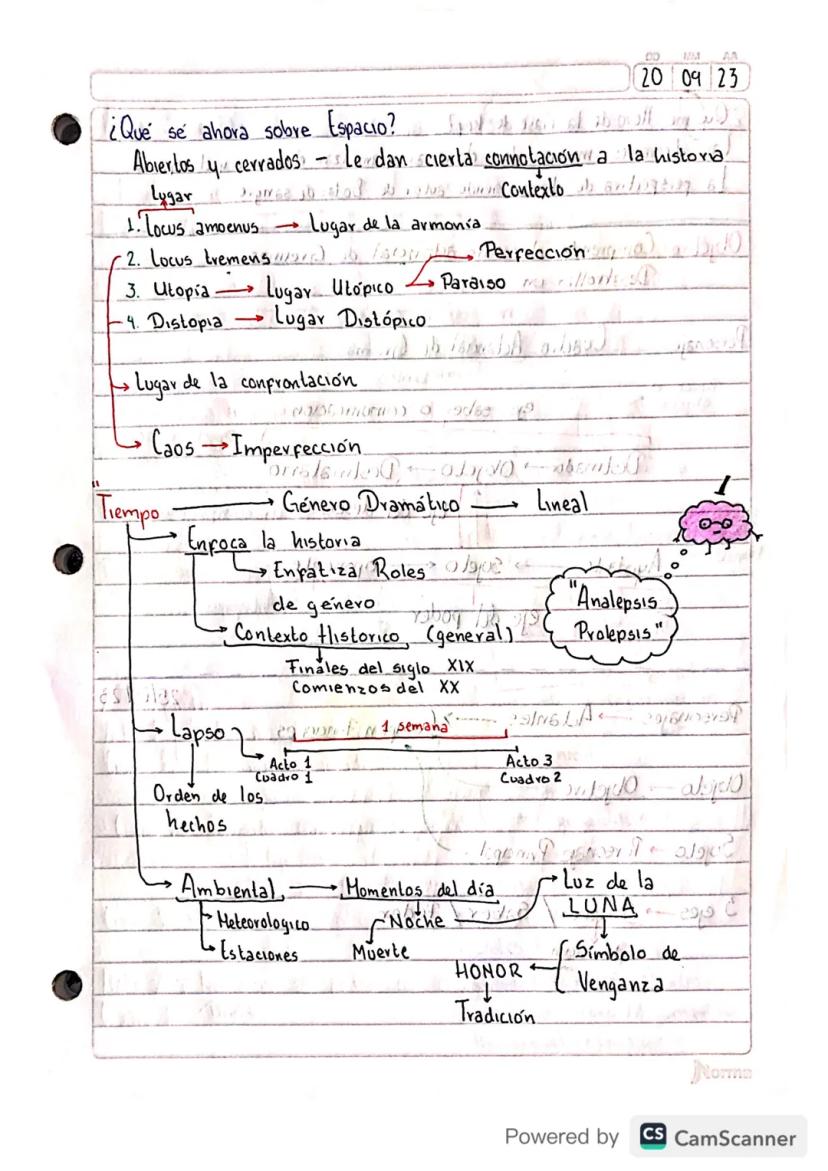 DD MM AA
20 09 23
¿Qué sé ahora sobre Espacio?
Abiertos y cerrados - Le dan cierta connotación a la historia
Lugar
Contexto
1. Locus amoenus → Lugar de la armonía
2. Locus tremens
Perfección
3. Utopía → Lugar Utópico → Paraiso
4. Distopia → Lugar Distópico
→ Lugar de la confrontación
→ Caos → Imperfección
"Tiempo → Género Dramático → Lineal
→ Enfoca la historia
→ Enfatiza Roles
de género
"Analepsis
Prolepsis"
→ Contexto Historico (general)
Finales del siglo XIX
Comienzos del XX
→ Lapso
1 semana
Acto 1
Cuadro 1
Acto 3
Cuadro 2
Orden de los
hechos
→ Ambiental → Momentos del día
→ Luz de la
LUNA
→ Meteorologico
Noche
→ Estaciones
Muerte
Símbolo de
Venganza
HONOR
Tradición
Norma
Powered by CS CamScanner